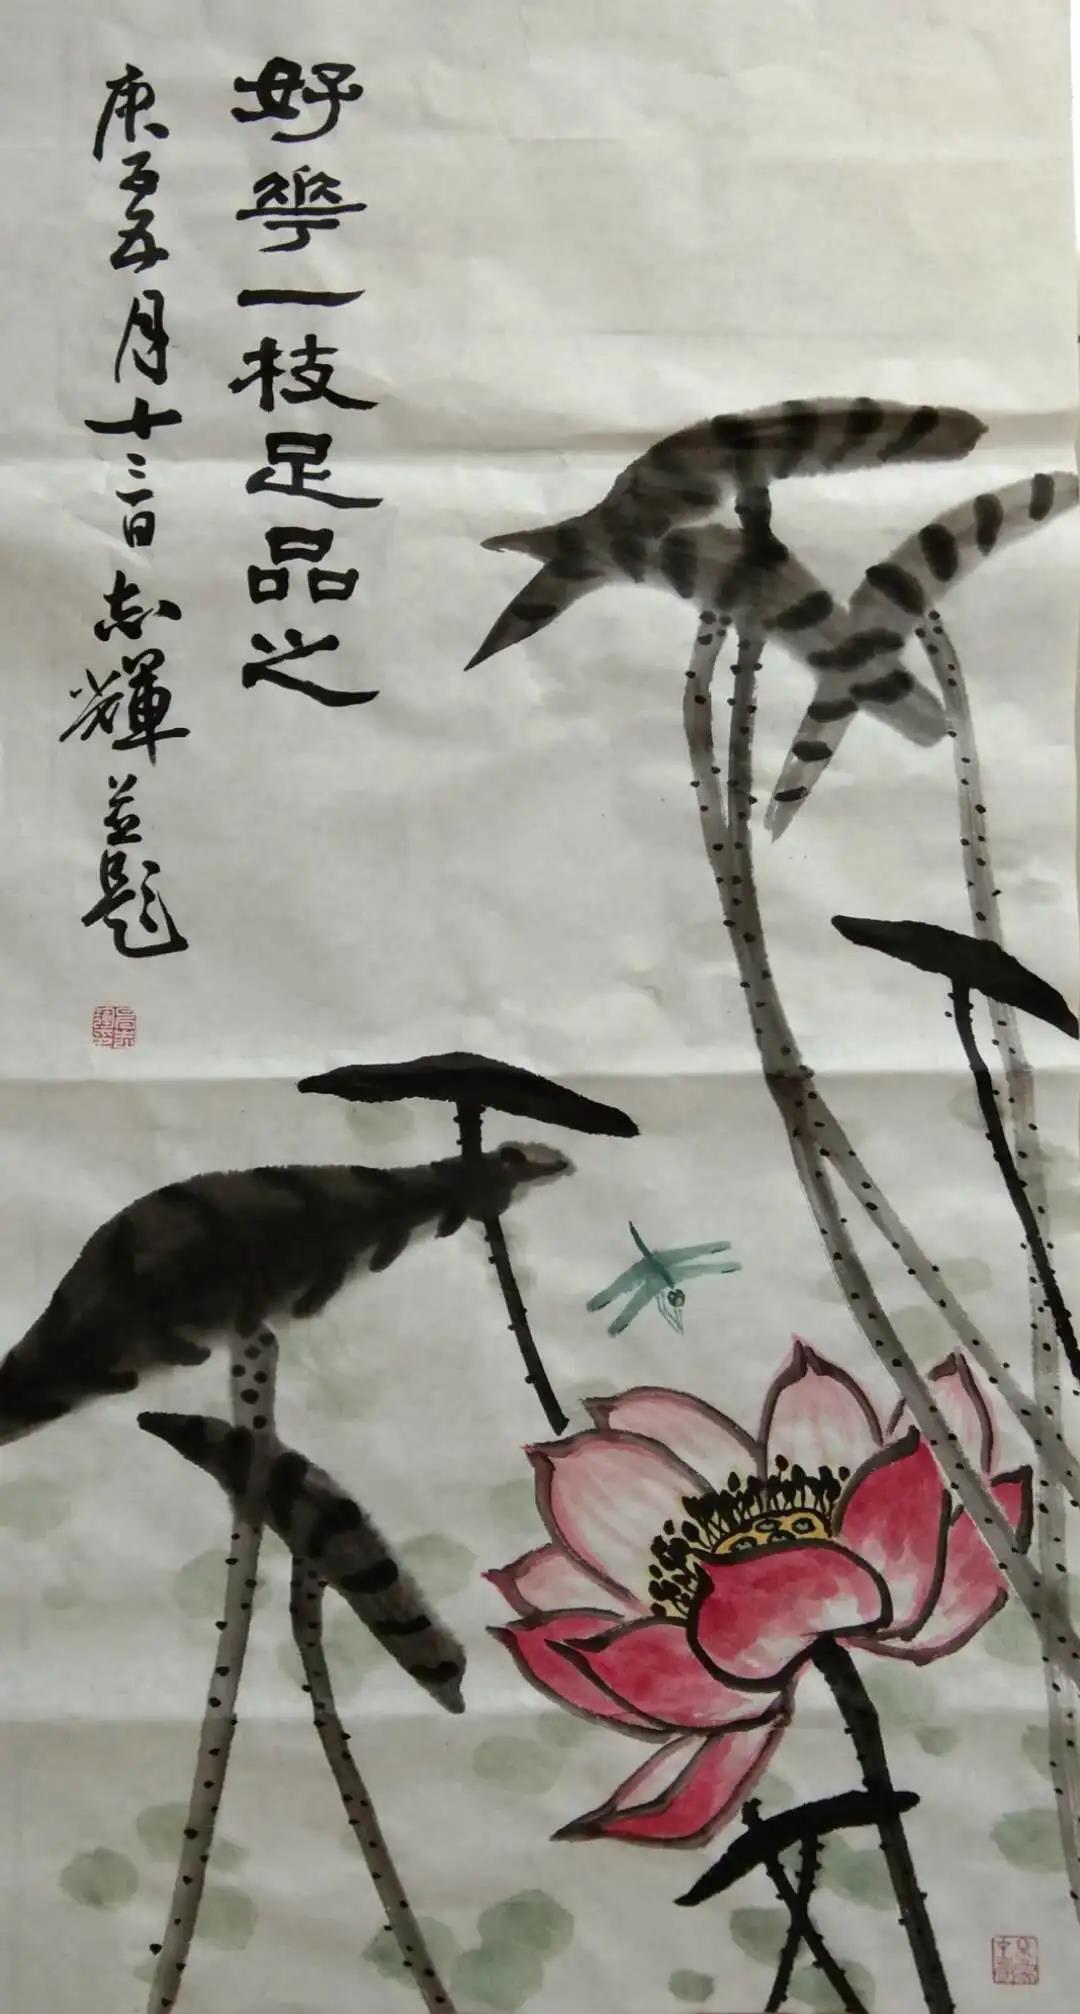 好華一枝足品之
庚子五月十三日志輝並題